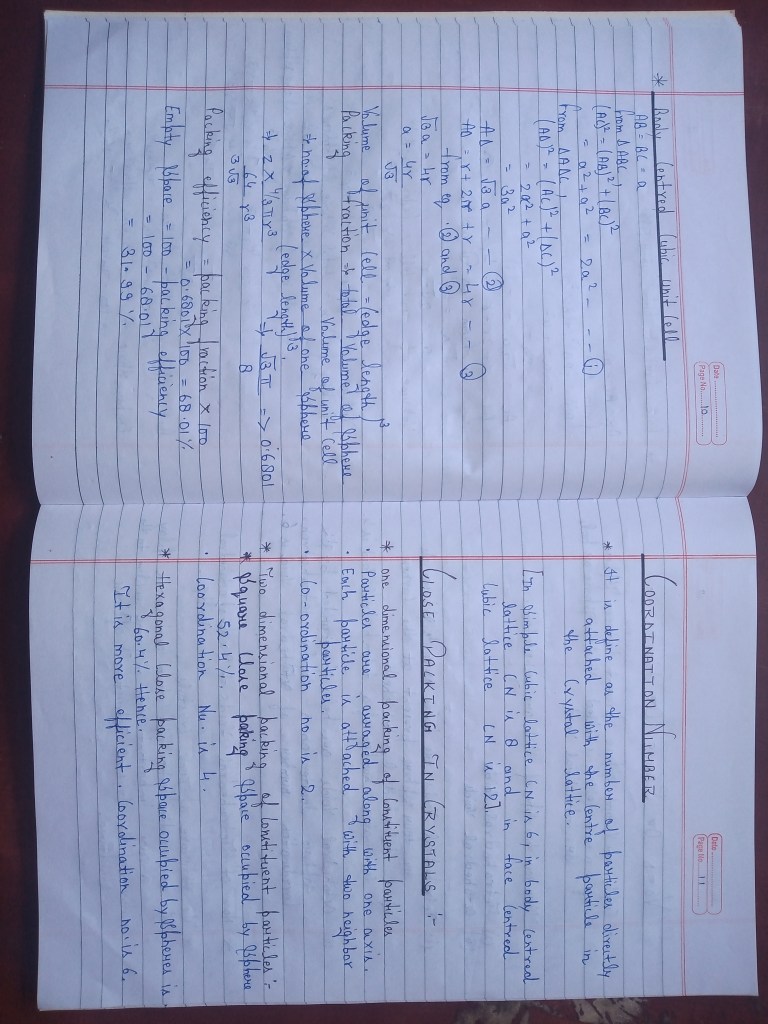 Date
Page No. 10
* Body Centred Cubic unit Cell
AB = BC = a
from ΔABC,
(AC)² = (AB)² + (BC)²
= a² + a² = 2a² - - - ①
from ΔADC,
(AD)² = (AC)² + (DC)²
= 2a² + a²
= 3a²
AD = √3 a - - ②
AD = r + 2r + r = 4r - - ③
from eq. ② and ③
√3a = 4r
a = 4r
√3
Volume of unit cell = (edge length)³
Packing fraction => total volume of sphere
Volume of unit cell
=> no. of sphere × Volume of one sphere
(edge length)³
=> 2 × 4/3 πr³ => √3 π => 0.6801
64 r³ 8
3√3
Packing efficiency = packing fraction × 100
= 0.6801 × 100 = 68.01 %
Empty space = 100 - packing efficiency
= 100 - 68.01
= 31.99 %
Date
Page No. 11
COORDINATION NUMBER
* It is define as the number of particles directly
attached with the centre particle in
the crystal lattice.
[In simple cubic lattice CN is 6, in body centred
lattice CN is 8 and in face centred
cubic lattice CN is 12].
CLOSE PACKING IN CRYSTALS :-
* one dimensional packing of constituent particles
• Particles are arraged along with one axis.
• Each particle is attached with two neighbor
particles.
• Co-ordination no is 2.
* Two dimensional packing of constituent particles :-
* Square close paking space occupied by sphere
52.4%.
• Coordination No. is 4.
* Hexagonal close packing space occupied by spheres is
60.4% Hence.
It is more efficient. Coordination no. is 6.